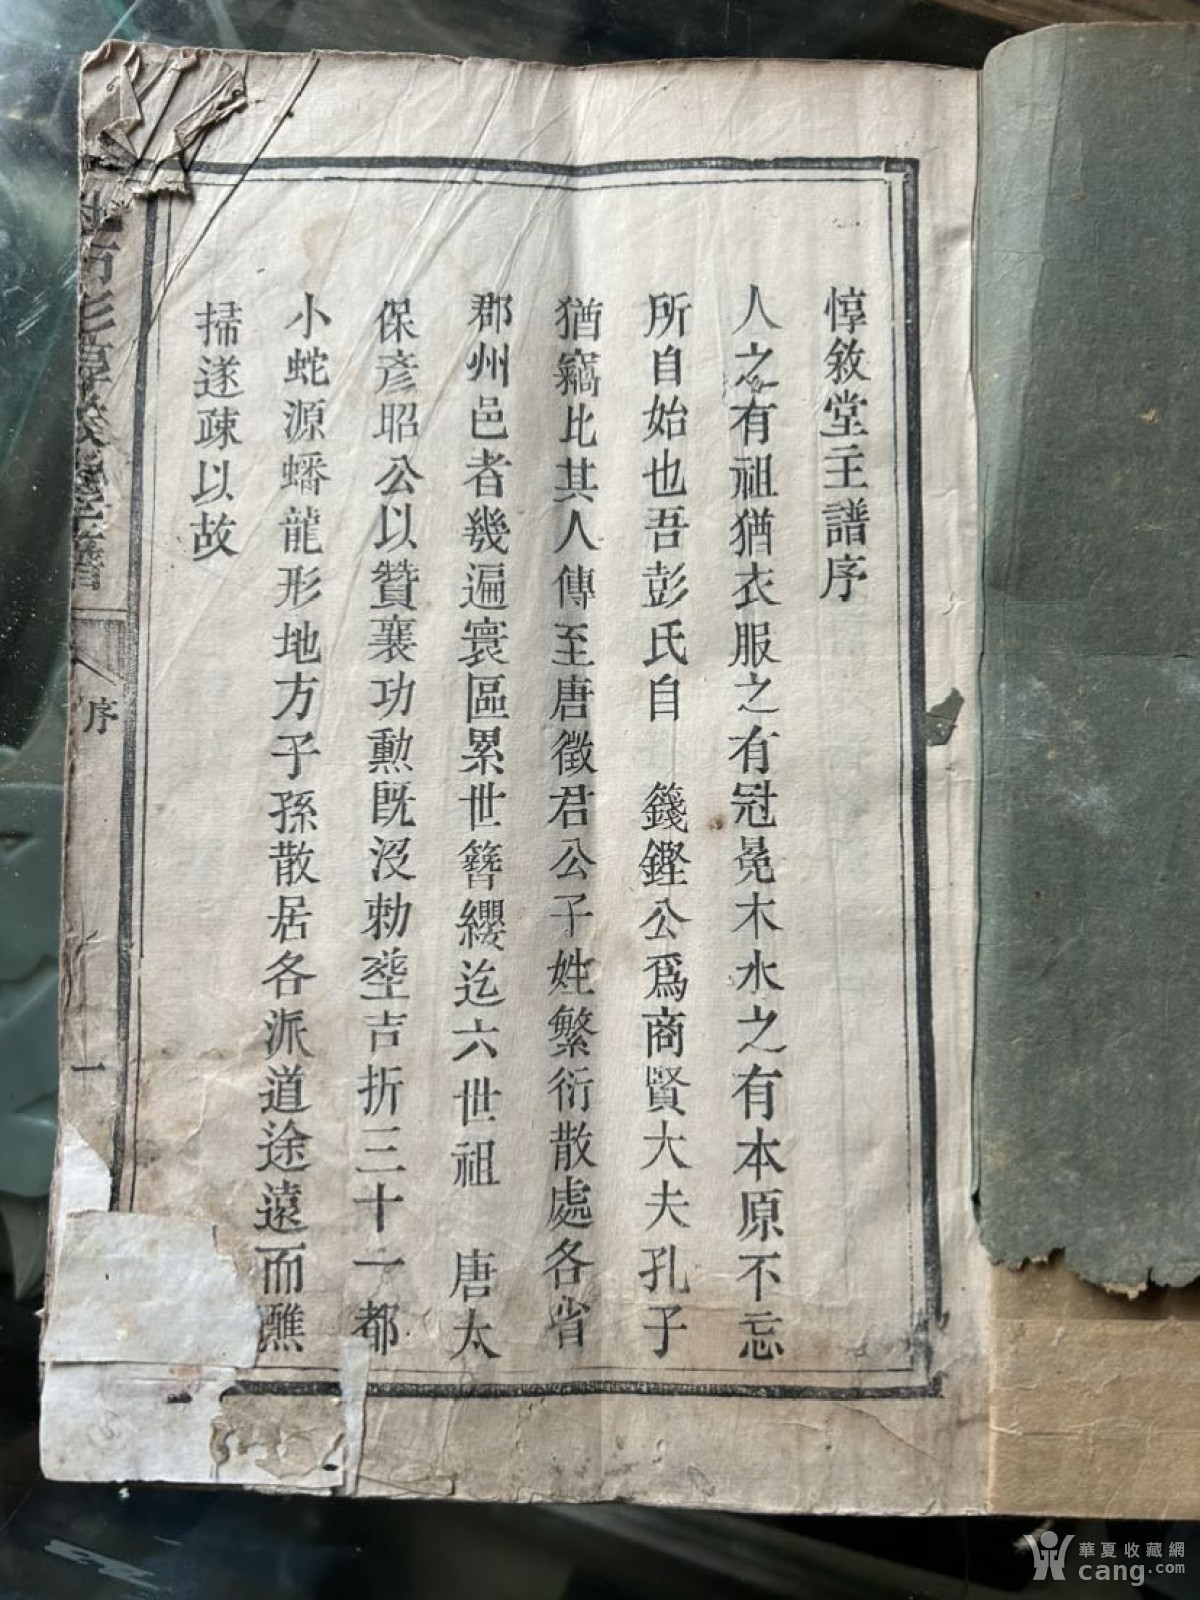 惇敘堂主譜序
人之有祖猶衣服之有冠冕木水之有本原不忘
所自始也吾彭氏自　籛鏗公爲商賢大夫孔子
猶竊比其人傳至唐徵君公子姓繁衍散處各省
郡州邑者幾遍寰區累世簪纓迄六世祖　唐太
保彥昭公以贊襄功勲既没勅塟吉折三十一都
小蛇源蟠龍形地方子孫散居各派道途遠而醮
掃遂疎以故
序
一
華夏收藏網
cang.com